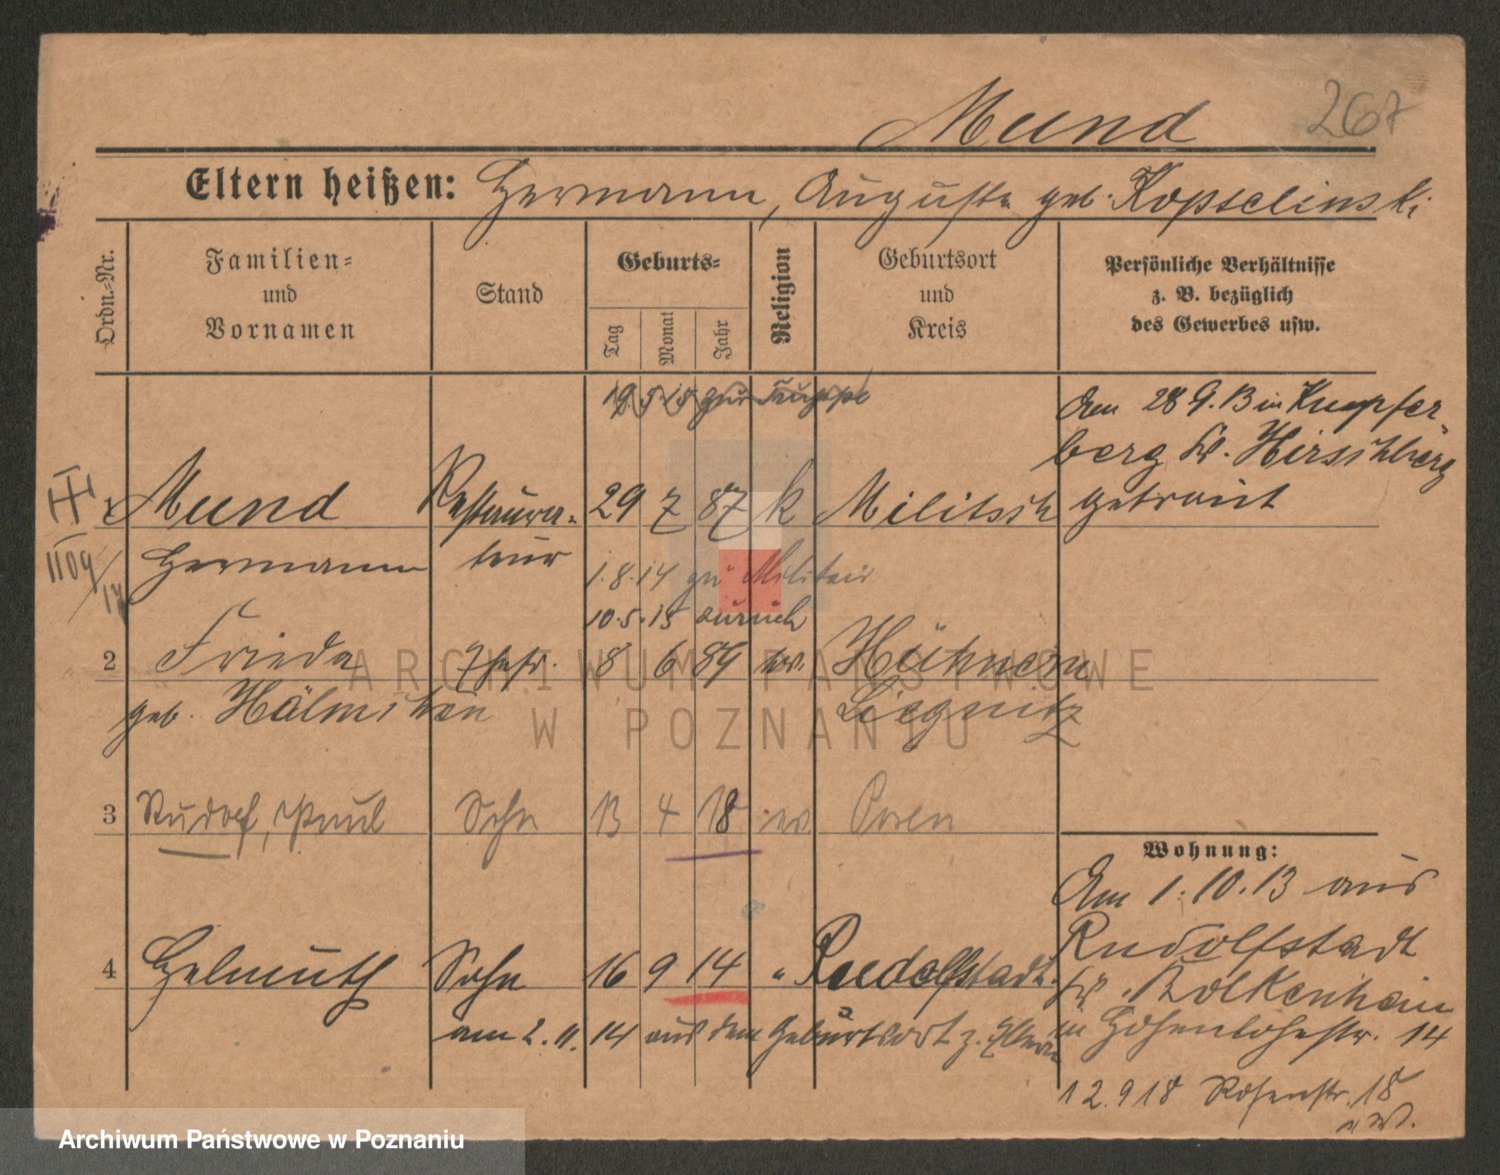 Mund
267
Eltern heißen: Hermann, Auguste geb. Kopselinski
Ordn.-Nr.
Familien-
und
Vornamen
Stand
Geburts-
Tag
Monat
Jahr
Religion
Geburtsort
und
Kreis
Persönliche Verhältnisse
z. B. bezüglich
des Gewerbes usw.
19.5.15 zur Truppe
Am 28 9. 13 in Kupfer-
berg Kr. Hirschberg
getraut
III
1109/
1 Mund Restaura- 29 7 87 k Militsch
Hermann teur
1.8.14 zu Militair
10.5.15 zurück
2 Frieda Ehefr. 8 6 89 ev. Hühnern
geb. Liegnitz
3 Rudolf, Paul Sohn 13 4 18 ev Posen
Wohnung:
Am 1.10.13 aus
Rudolfstadt
Kr. Bolkenhain
in Hohenlohestr. 14
4 Helmuth Sohn 16 9 14 " Rudolfstadt
am 2.11.14 aus dem Geburtsort z. Eltern
12.9 18 Rosenstr. 18
ARCHIWUM PAŃSTWOWE
W POZNANIU
Archiwum Państwowe w Poznaniu